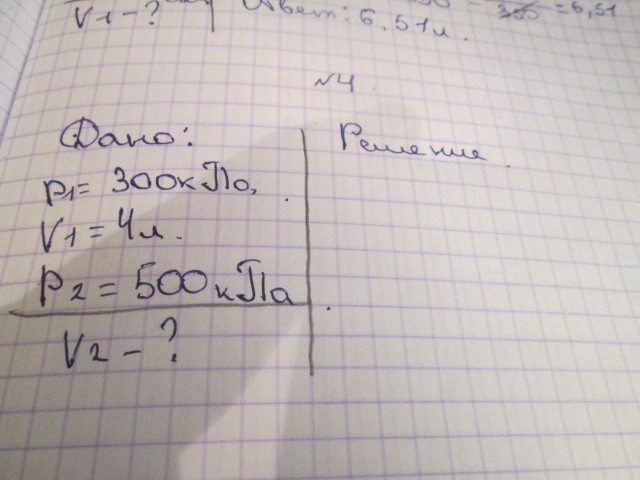 V1 - ?
Ответ: 6,51л.
= 6,51
N4.
Дано:
Решение.
P1 = 300кПа,
V1 = 4л.
P2 = 500кПа
V2 - ?